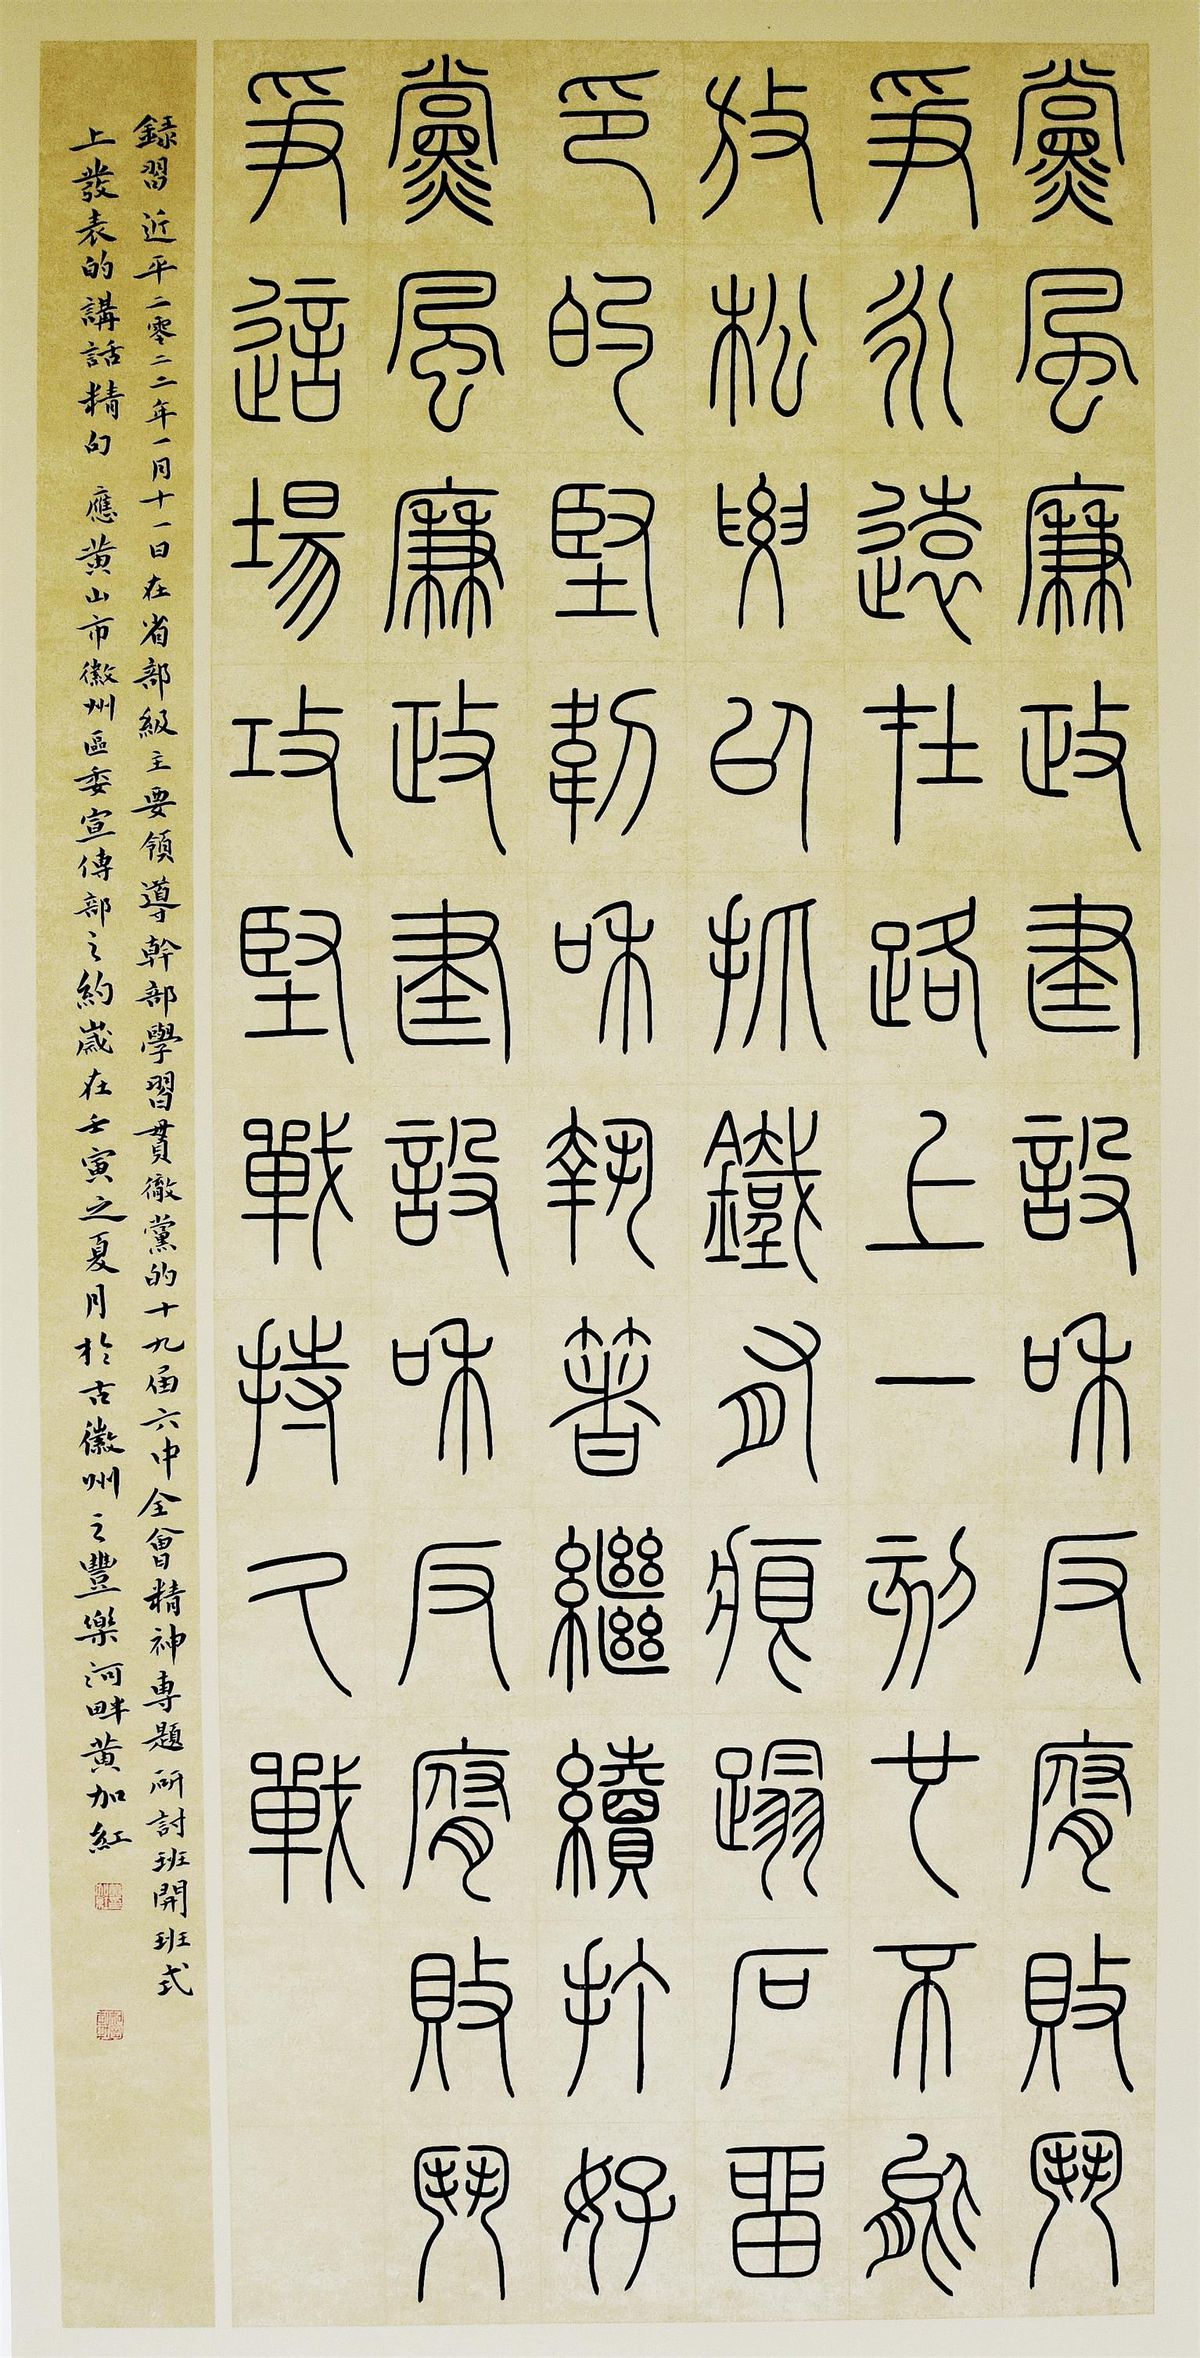 黨風廉政建設和反腐敗鬥
爭永遠在路上一刻也不能
放松要以抓鐵有痕蹋石留
印的堅韌和執著繼續打好
黨風廉政建設和反腐敗鬥
爭這場攻堅戰持久戰
錄習近平二零二二年一月十一日在省部級主要領導幹部學習貫徹黨的十九屆六中全會精神專題研討班開班式
上發表的講話精句 應黃山市徽州區委宣傳部之約歲在壬寅之夏月於古徽州之豐樂河畔黃加紅